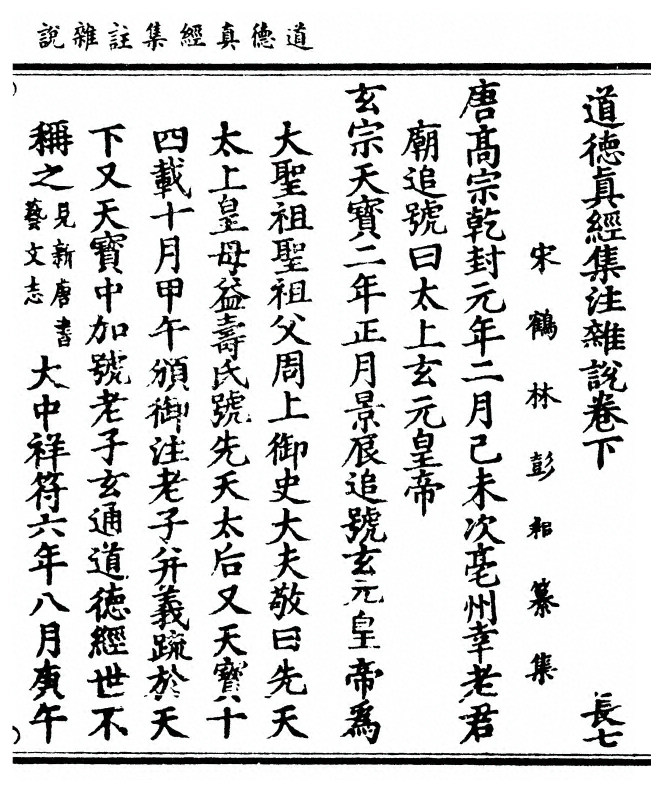 道德真經集註雜說
道德眞經集注雜說卷下
長七
宋鶴林彭耜纂集
唐髙宗乾封元年二月己未次亳州幸老君
廟追號曰太上玄元皇帝
玄宗天寶二年正月景辰追號玄元皇帝爲
大聖祖聖祖父周上御史大夫敬曰先天
太上皇母益壽氏號先天太后又天寶十
四載十月甲午頒御注老子并義䟽於天
下又天寶中加號老子玄通道德經世不
稱之見新唐書藝文志大中祥符六年八月庚午